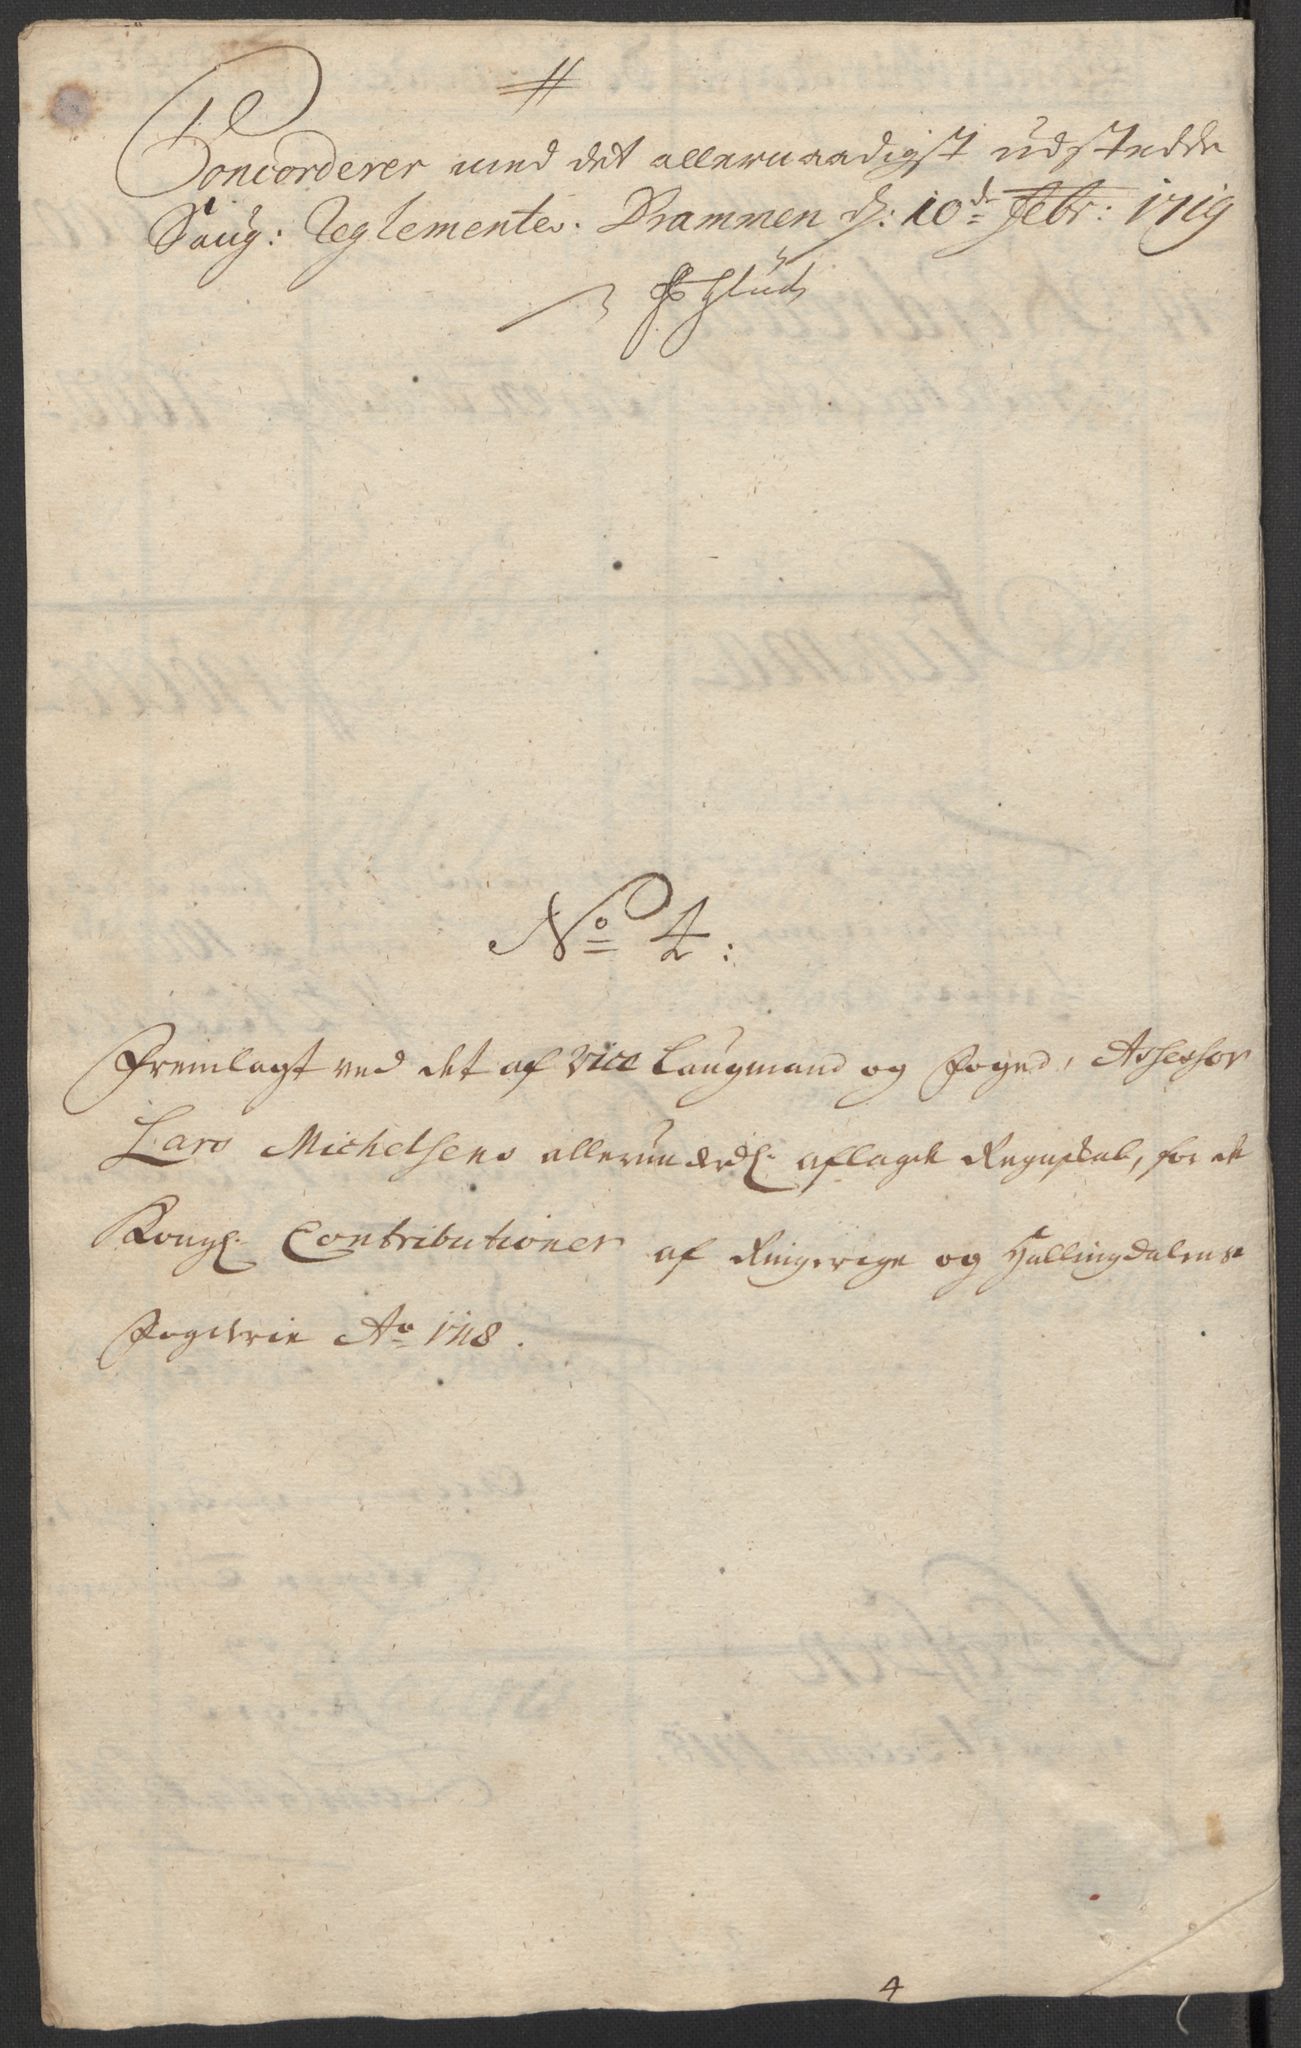 Concorderer med det allernaadigst udstedde
Saug: Reglemente. Drammen d: 10de Febr: 1719
No 4:
Fremlagt ved det af Vice Laugmand og Foged, Assessor
Lars Michelsens allerunderdl: aflagde Regnskab, for de
Kongl: Contributioner af Ringerige og Hallingdalens
Fogderie Ao 1718.
4